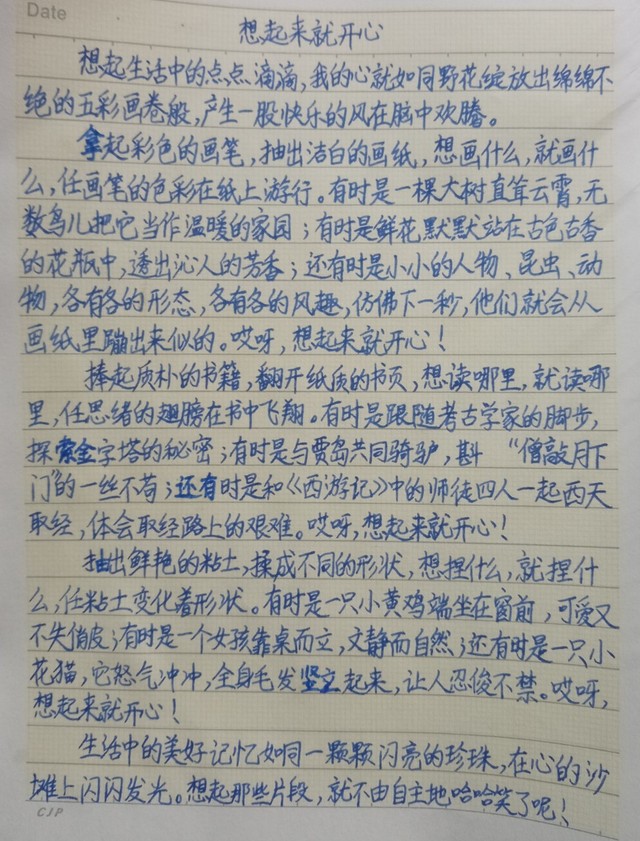 Date
想起来就开心
想起生活中的点点滴滴,我的心就如同野花绽放出绵绵不
绝的五彩画卷般,产生一股快乐的风在脑中欢腾。
拿起彩色的画笔,抽出洁白的画纸,想画什么,就画什
么,任画笔的色彩在纸上游行。有时是一棵大树直耸云霄,无
数鸟儿把它当作温暖的家园;有时是鲜花默默站在古色古香
的花瓶中,透出沁人的芳香;还有时是小小的人物、昆虫、动
物,各有各的形态,各有各的风趣,仿佛下一秒,他们就会从
画纸里蹦出来似的。哎呀,想起来就开心!
捧起质朴的书籍,翻开纸质的书页,想读哪里,就读哪
里,任思绪的翅膀在书中飞翔。有时是跟随考古学家的脚步,
探索金字塔的秘密;有时是与贾岛共同骑驴,斟 “僧敲月下
门”的一丝不苟;还有时是和《西游记》中的师徒四人一起西天
取经,体会取经路上的艰难。哎呀,想起来就开心!
抽出鲜艳的粘土,揉成不同的形状,想捏什么,就捏什
么,任粘土变化着形状。有时是一只小黄鸡端坐在窗前,可爱又
不失俏皮;有时是一个女孩靠桌而立,文静而自然;还有时是一只小
花猫,它怒气冲冲,全身毛发竖立起来,让人忍俊不禁。哎呀,
想起来就开心!
生活中的美好记忆如同一颗颗闪亮的珍珠,在心的沙
滩上闪闪发光。想起那些片段,就不由自主地哈哈笑了呢!
CJP